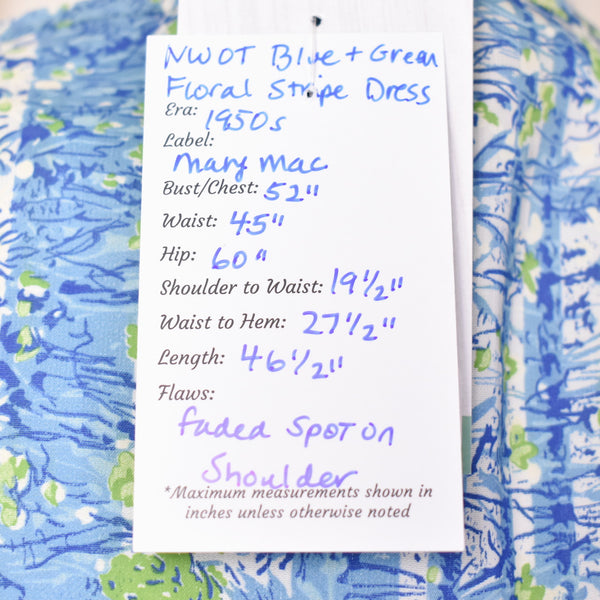 NWOT Blue + Green
Floral Stripe Dress
Era: 1950s
Label:
Mary Mac
Bust/Chest: 52"
Waist: 45"
Hip: 60"
Shoulder to Waist: 19 1/2"
Waist to Hem: 27 1/2"
Length: 46 1/2"
Flaws:
faded spot on
Shoulder
*Maximum measurements shown in
inches unless otherwise noted